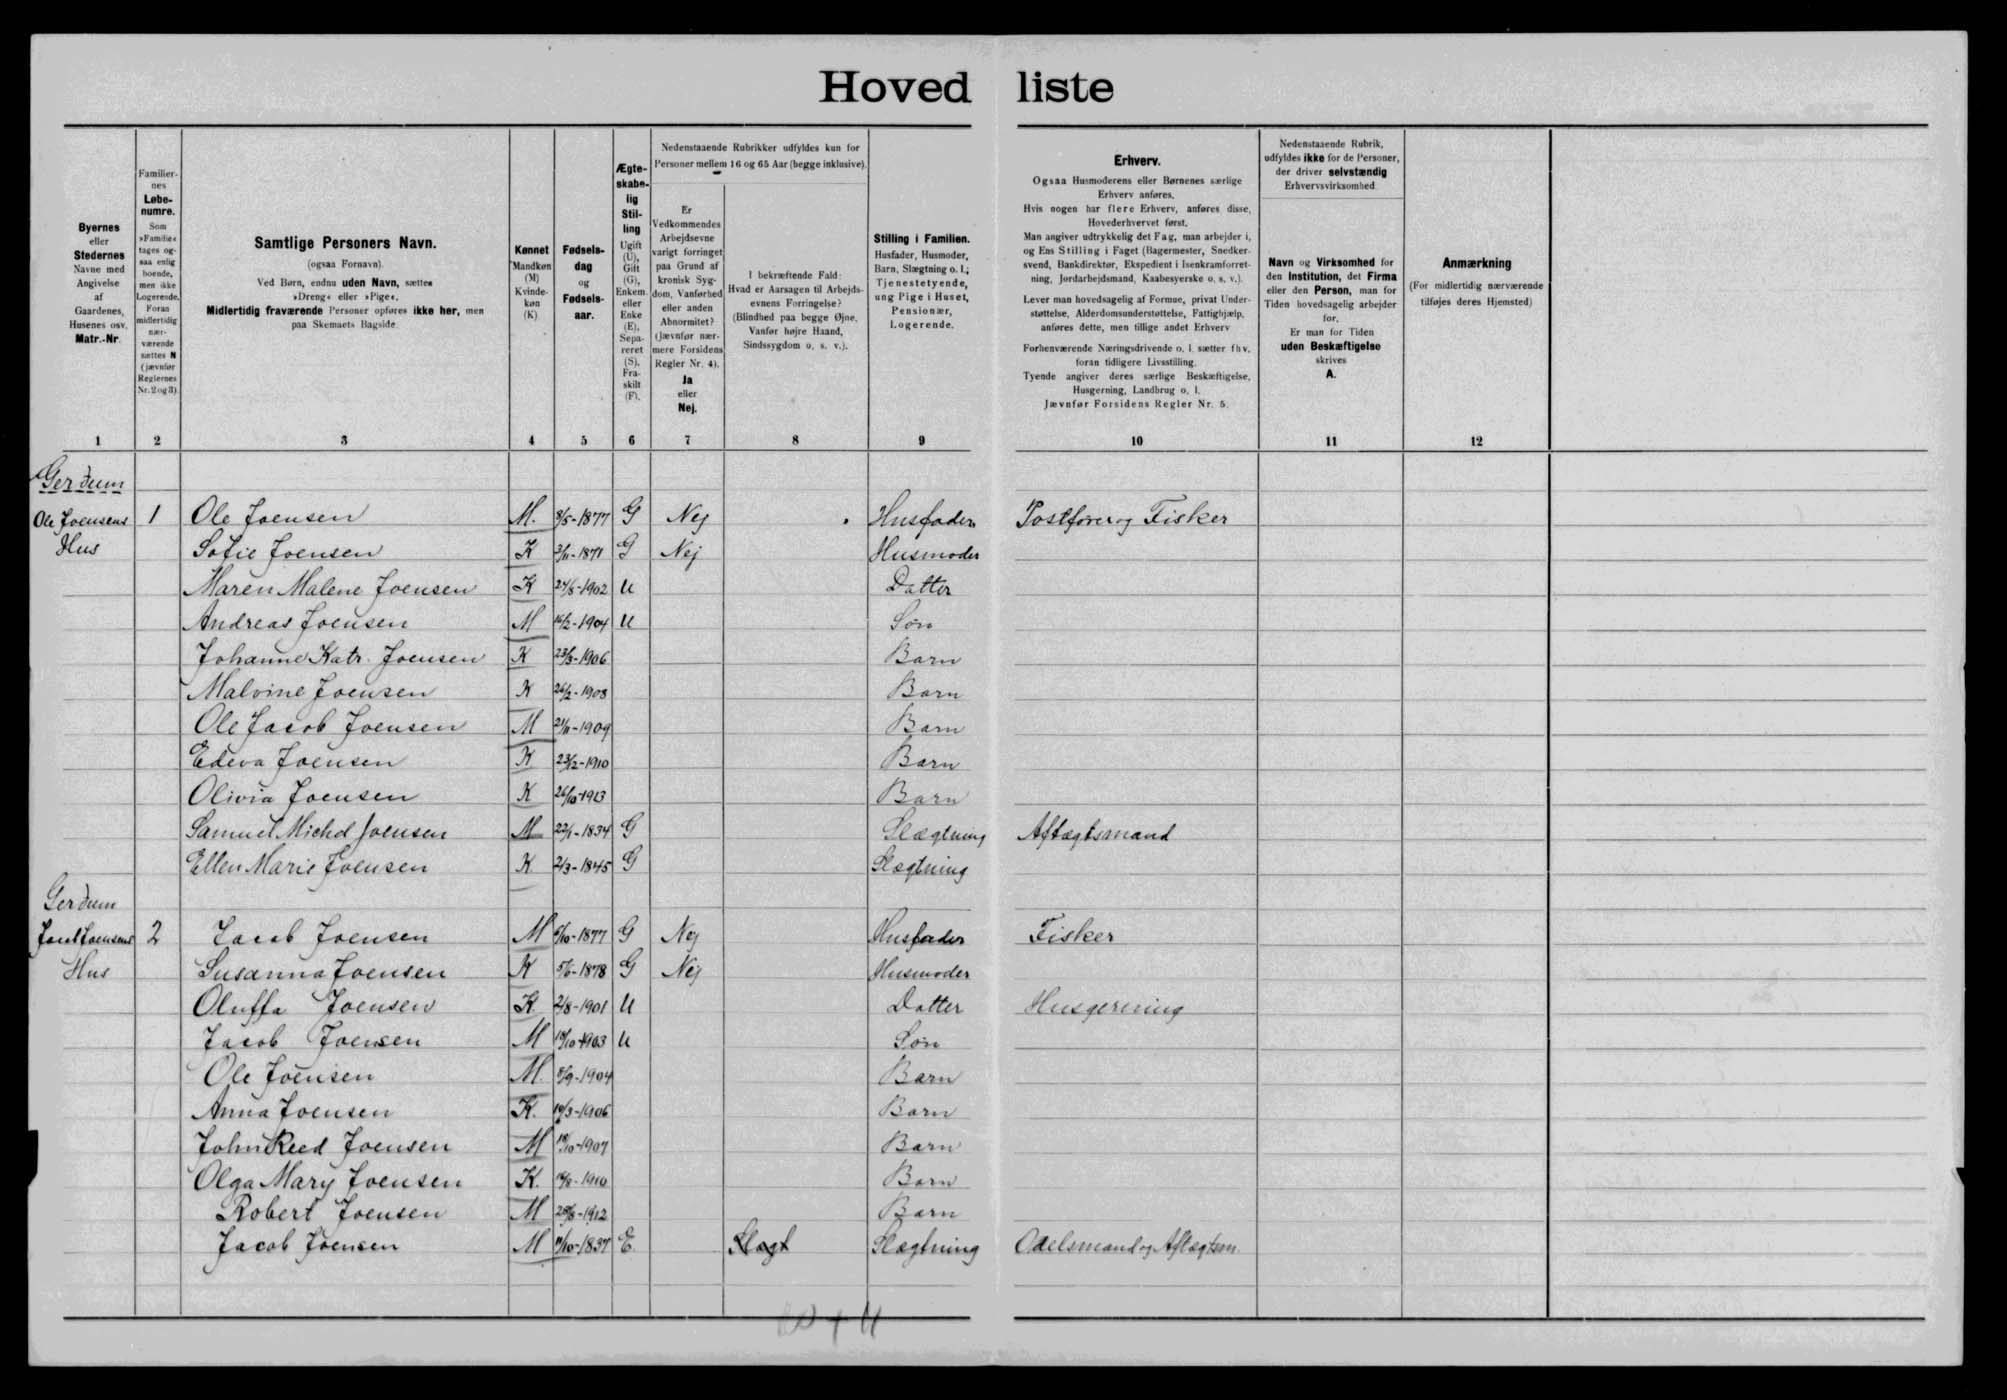 Hovedliste
Byernes
eller
Stedernes
Navne med
Angivelse
af
Gaardenes,
Husenes osv.
Matr.-Nr.
1
Familier-
nes
Løbe-
numre.
Som
»Familie«
tages og-
saa enlig
boende,
men ikke
Logerende.
Foran
midlertidig
nær-
værende
sættes N
(jævnfør
Reglernes
Nr. 2 og 3).
2
Samtlige Personers Navn.
(ogsaa Fornavn).
Ved Børn, endnu uden Navn, sættes
»Dreng« eller »Pige«.
Midlertidig fraværende Personer opføres ikke her, men
paa Skemaets Bagside.
3
Kønnet
Mandkøn
(M)
Kvinde-
køn
(K)
4
Fødsels-
dag
og
Fødsels-
aar.
5
Ægte-
skabe-
lig
Stil-
ling
Ugift
(U),
Gift
(G),
Enkem.
eller
Enke
(E),
Sepa-
reret
(S),
Fra-
skilt
(F).
6
Nedenstaaende Rubrikker udfyldes kun for
Personer mellem 16 og 65 Aar (begge inklusive).
Er
Vedkommendes
Arbejdsevne
varigt forringet
paa Grund af
kronisk Syg-
dom, Vanførhed
eller anden
Abnormitet?
(Jævnfør nær-
mere Forsidens
Regler Nr. 4).
Ja
eller
Nej.
7
I bekræftende Fald:
Hvad er Aarsagen til Arbejds-
evnens Forringelse?
(Blindhed paa begge Øjne,
Vanfør højre Haand,
Sindssygdom o. s. v.).
8
Stilling i Familien.
Husfader, Husmoder,
Barn, Slægtning o. l.;
Tjenestetyende,
ung Pige i Huset,
Pensionær,
Logerende.
9
Erhverv.
Ogsaa Husmoderens eller Børnenes særlige
Erhverv anføres.
Hvis nogen har flere Erhverv, anføres disse,
Hovederhvervet først.
Man angiver udtrykkelig det Fag, man arbejder i,
og Ens Stilling i Faget (Bagermester, Snedker-
svend, Bankdirektør, Ekspedient i Isenkramforret-
ning, Jordarbejdsmand, Kaabesyerske o. s. v.).
Lever man hovedsagelig af Formue, privat Under-
støttelse, Alderdomsunderstøttelse, Fattighjælp,
anføres dette, men tillige andet Erhverv
Forhenværende Næringsdrivende o. l. sætter fhv.
foran tidligere Livsstilling.
Tyende angiver deres særlige Beskæftigelse,
Husgerning, Landbrug o. l.
Jævnfør Forsidens Regler Nr. 5.
10
Nedenstaaende Rubrik,
udfyldes ikke for de Personer,
der driver selvstændig
Erhvervsvirksomhed.
Navn og Virksomhed for
den Institution, det Firma
eller den Person, man for
Tiden hovedsagelig arbejder
for.
Er man for Tiden
uden Beskæftigelse
skrives
A.
11
Anmærkning
(For midlertidig nærværende
tilføjes deres Hjemsted)
12
Gerdum
Ole Joensens 1 Ole Joensen M. 8/5-1877 G Nej Husfader Postfører og Fisker
Hus Sofie Joensen K 3/11-1871 G Nej Husmoder
Maren Malene Joensen K 24/6-1902 U Datter
Andreas Joensen M 15/2-1904 U Søn
Johanne Katr. Joensen K 23/3-1906 Barn
Malvine Joensen K 26/2-1908 Barn
Ole Jacob Joensen M 21/11-1909 Barn
Edeva Joensen K 23/12-1910 Barn
Olivia Joensen K 26/10-1913 Barn
Samuel Michel Joensen M 22/1-1834 G Slægtning Aftægtsmand
Ellen Marie Joensen K. 2/3-1845 G Slægtning
Gerdum
Jacob Joensens 2 Jacob Joensen M 6/10-1877 G Nej Husfader Fisker
Hus Susanna Joensen K 5/6-1878 G Nej Husmoder
Oluffa Joensen K. 2/8-1901 U Datter Husgerning
Jacob Joensen M 18/10-1903 U Søn
Ole Joensen M. 8/9-1904 Barn
Anna Joensen K. 10/3-1906 Barn
John Reed Joensen M 18/10-1907 Barn
Olga Mary Joensen K. 18/8-1910 Barn
Robert Joensen M 28/8-1912 Barn
Jacob Joensen M 11/10-1837 E. Slægt Slægtning Odelsmand og Aftægtsm.